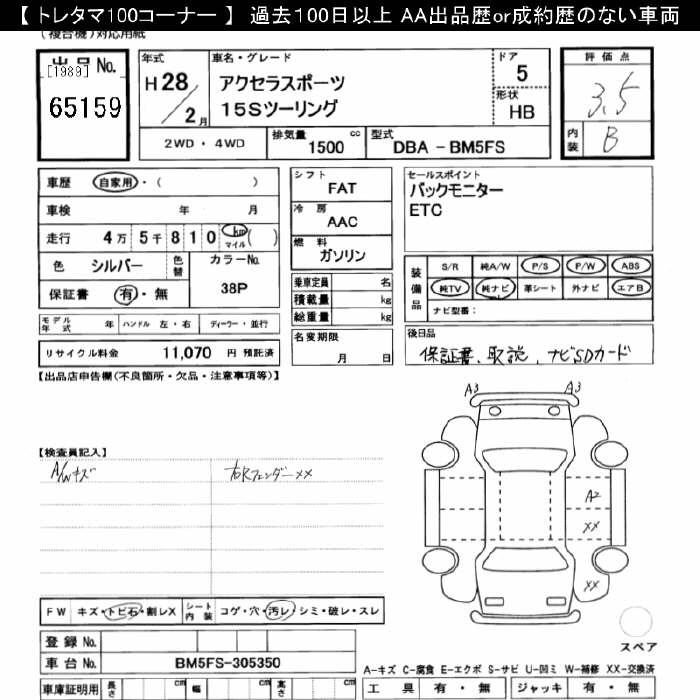 【 トレタマ100コーナー 】 過去100日以上 AA出品歴or成約歴のない車両
(複合機)対応用紙
出品 No.
[1989]
65159
年式
H 28 / 2 月
車名・グレード
アクセラスポーツ
15Sツーリング
ドア
5
形状
HB
評価点
3.5
内装
B
2WD ・ 4WD
排気量 cc
1500
型式
DBA - BM5FS
車歴 自家用 ・ ( )
車検 年 月
走行 4万 5千 8 1 0 km マイル ( )
色 シルバー 色替 カラーNo.
38P
保証書 有 ・ 無
モデル年式 年 ハンドル 左・右 ディーラー・並行
リサイクル料金 11,070 円 預託済
シフト
FAT
冷房
AAC
燃料
ガソリン
乗車定員 名
積載量 kg
総重量 kg
名変期限
月 日
セールスポイント
バックモニター
ETC
装備品
S/R 純A/W P/S P/W ABS
純TV 純ナビ 革シート 外ナビ エアB
ナビ型番:
後日品
保証書、取説、ナビSDカード
【出品店申告欄(不良箇所・欠品・注意事項等)】
【検査員記入】
A/Wキズ
右RフェンダーXX
A3 A3
A2
XX
XX
スペア
FW キズ・トビ石・割レX シート内装 コゲ・穴・汚レ・シミ・破レ・スレ
登録 No.
車台 No. BM5FS-305350
車庫証明用 長さ cm 幅 cm 高さ cm
A-キズ C-腐食 E-エクボ S-サビ U-凹ミ W-補修 XX-交換済
工具 有・無 ジャッキ 有・無